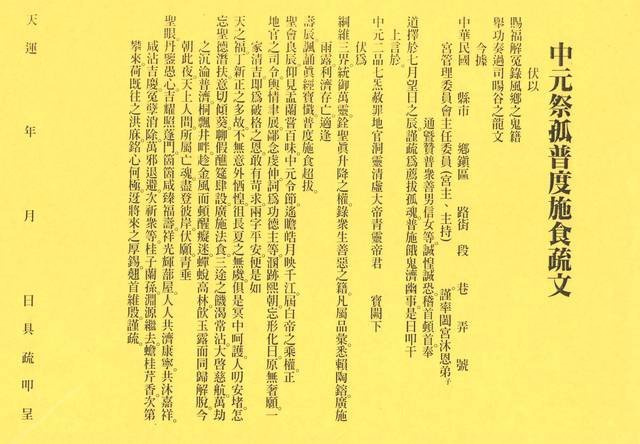 中元祭孤普度施食疏文
伏以
賜福解冤錄風鄉之鬼籍
舉功奏過司暘谷之龍文
今據
中華民國 縣市 鄉鎮區 路街 段 巷 弄 號
宮管理委員會主任委員(宮主、主持) 謹率闔宮沐恩弟子
通暨贊普衆善男信女等誠惶誠恐稽首頓首奉
道擇於七月望日之辰謹疏為薦拔孤魂普施餓鬼濟幽事是日叩干
上言於
中元二品七炁赦罪地官洞靈清虛大帝青靈帝君 寶闕下
伏爲
綱維三界統御萬靈銓聖眞升降之權錄衆生善惡之籍凡屬品彙悉賴陶鎔廣施
雨露利濟存亡適逢
壽辰諷誦眞經寶懺普度施食超拔。
聖會良辰仰見盂蘭當百味中元令節遙瞻皓月映千江屆白帝之乘權正
地官之司令輿情聿展鄙念虔伸詞為功德主等涸跡熙朝忘形化日原無奢願一
家清吉即爲破格之恩敢有苛求兩字平安便是如
天之福丁新正之冬故不無意外恓惶徂長夏之無虞俱是冥中呵護人叨安堵怎
忘聖德潛扶意切傾葵聊假醮筵肆設廣施法食三途之饑渴常沾大啓慈航萬劫
之沉淪普濟桐飄井畔趁金風而頓醒癡迷蟬蛻高林飲玉露而同歸解脫今
朝此夜天上人間所屬亡魂盡登彼岸伏願青垂
聖眼丹鑒愚心吉耀照蓬門箇箇咸臻福壽祥光輝蔀屋人人共濟康寧共沐嘉祥。
咸沾吉慶冤孽消除萬邪退避次祈衆等桂子蘭孫淵源繼去蟾桂芹香次第
攀來荷既往之洪庥銘心何極迓將來之厚錫翹首維殷謹疏。
天運 年 月 日具疏叩呈